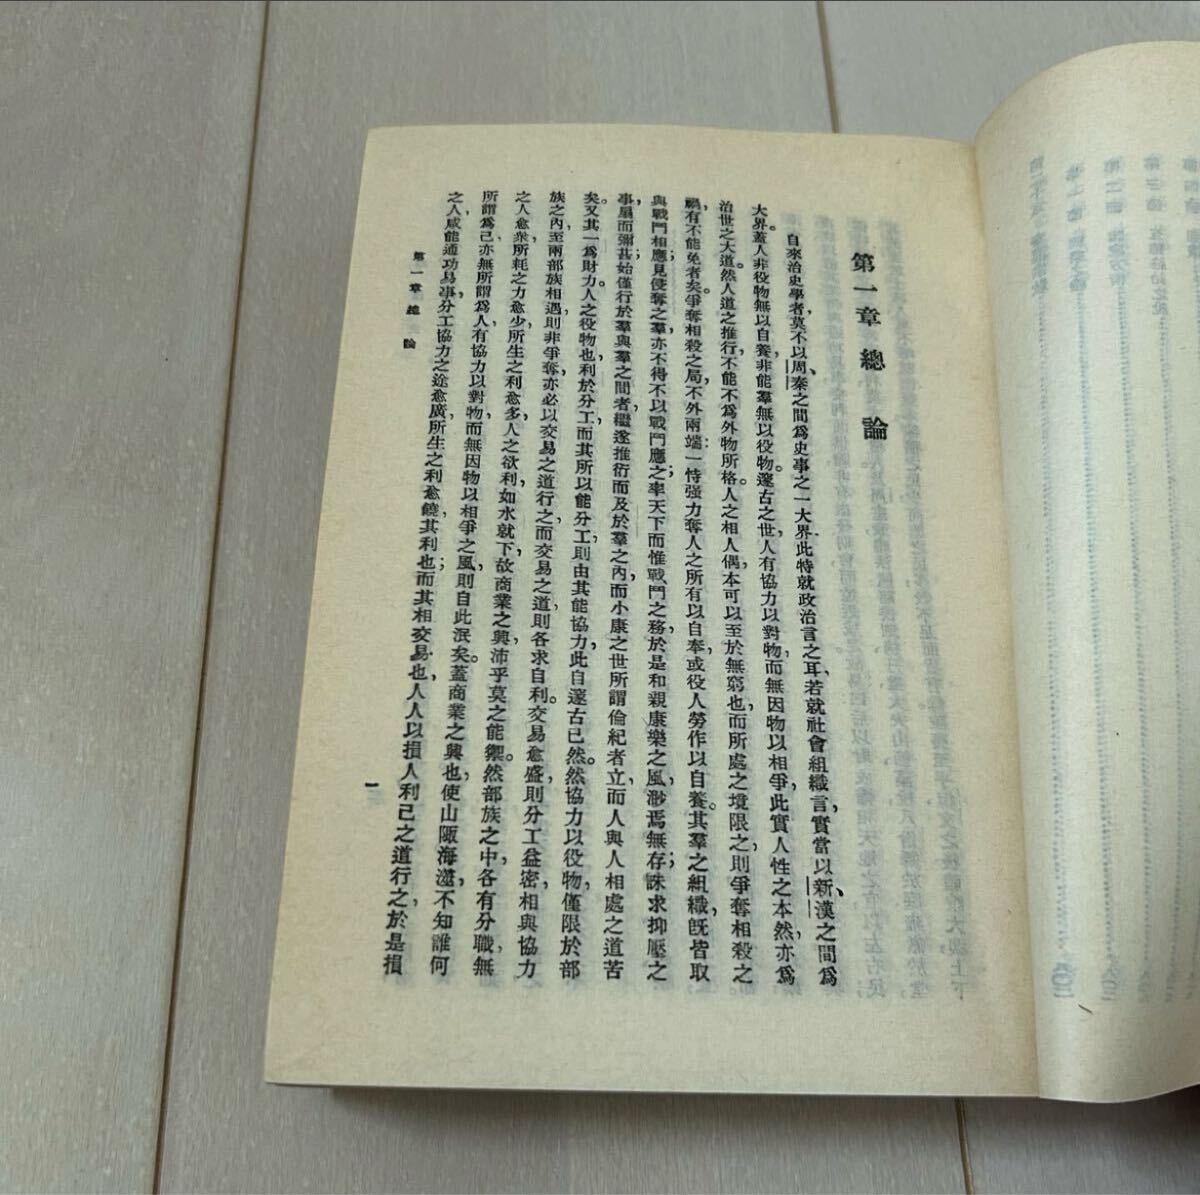 第一章 總 論
自來治史學者，莫不以周、秦之間爲史事之一大界，此特就政治言之耳。若就社會組織言，實當以新、漢之間爲
大界。蓋人非役物無以自養，非能羣無以役物。邃古之世，人有協力以對物，而無因物以相爭，此實人性之本然，亦爲
治世之大道。然人道之推行，不能不爲外物所格。人之相人偶，本可以至於無窮也，而所處之境限之，則爭奪相殺之
禍，有不能免者矣。爭奪相殺之局，不外兩端：一恃强力奪人之所有以自奉，或役人勞作以自養。其羣之組織，旣皆取
與戰鬥相應；見侵奪之羣，亦不得不以戰鬥應之；率天下而惟戰鬥之務，於是和親康樂之風，渺焉無存；誅求抑壓之
事，扇而彌甚；始僅行於羣與羣之間者，繼遂推衍而及於羣之內，而小康之世所謂倫紀者立，而人與人相處之道苦
矣。又其一爲財力。人之役物也，利於分工，而其所以能分工，則由其能協力，此自邃古已然。然協力以役物，僅限於部
族之內，至兩部族相遇，則非爭奪，亦必以交易之道行之，而交易之道，則各求自利。交易愈盛，則分工益密，相與協力
之人愈衆，所耗之力愈少，所生之利愈多，人之欲利，如水就下，故商業之興，沛乎莫之能禦。然部族之中，各有分職，無
所謂爲己，亦無所謂爲人，有協力以對物，而無因物以相爭之風，則自此泯矣。蓋商業之興也，使山陬海澨，不知誰何
之人，咸能通功易事，分工協力之途愈廣，所生之利愈饒，其利也；而其相交易也，人人以損人利己之道行之，於是損
第一章 總 論
一